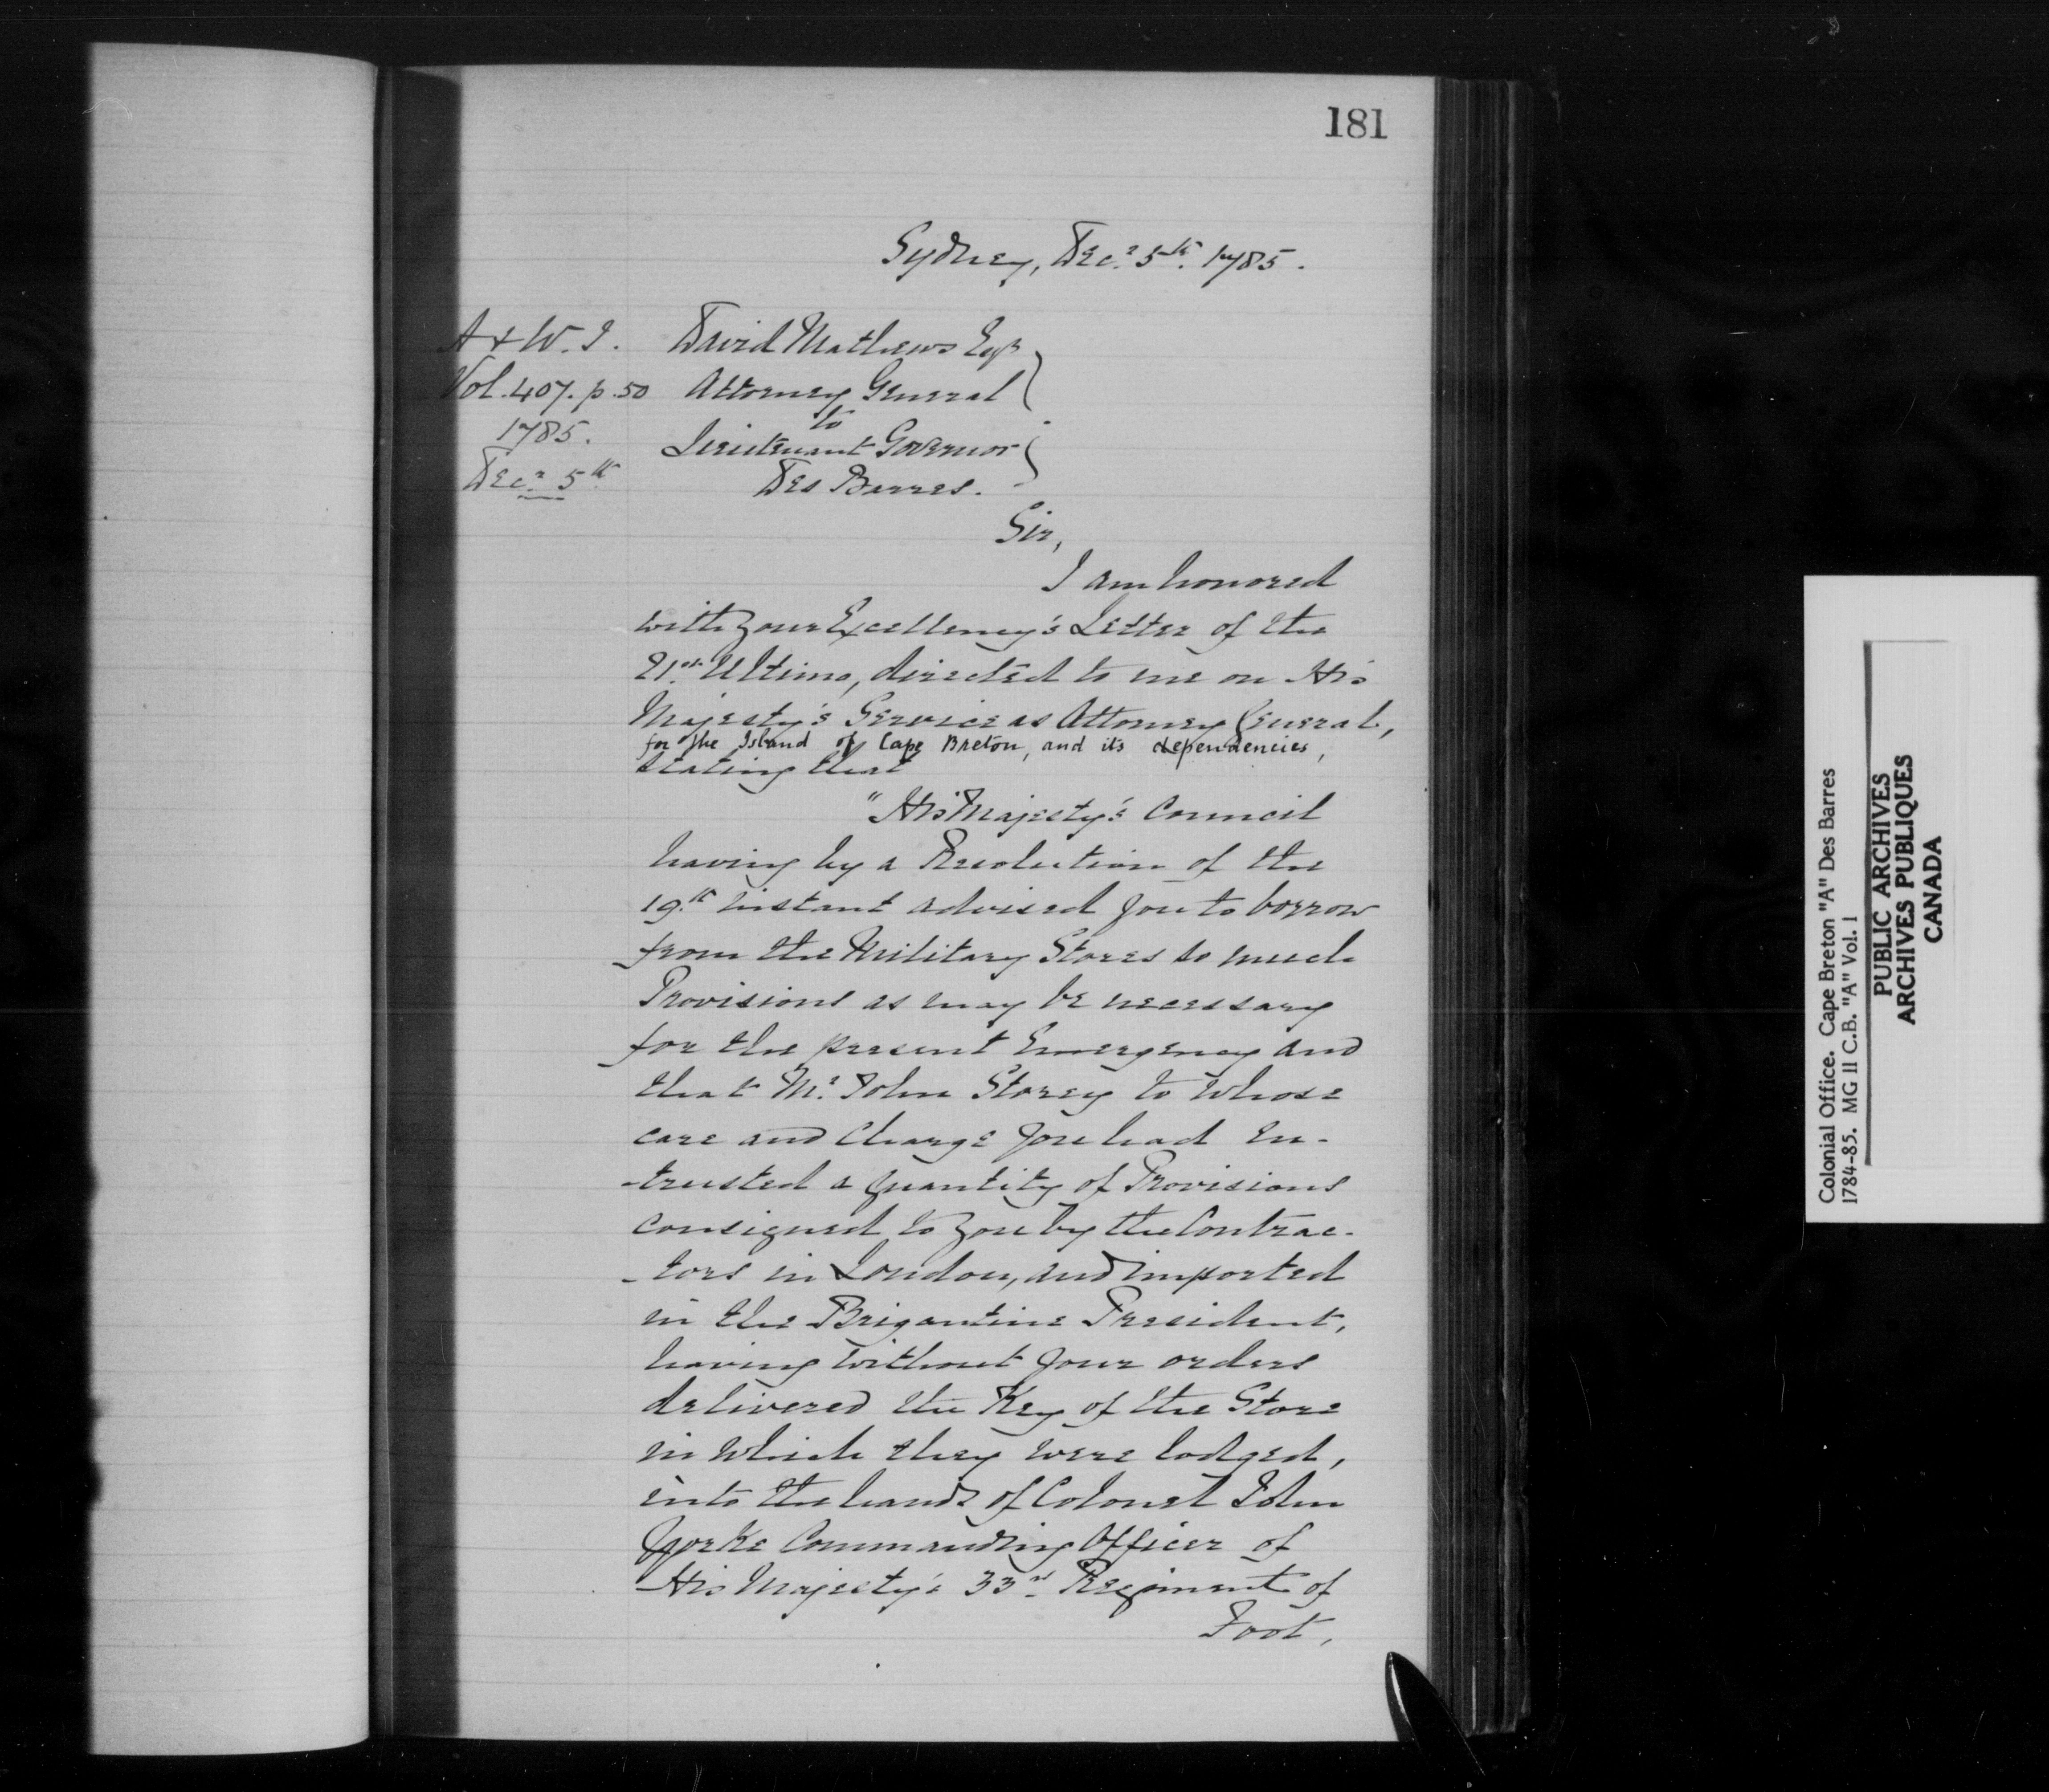 181
Sydney, Dec.r 5th. 1785.
A & W. I.
Vol. 407. p. 50
1785.
Dec.r 5th.
David Mathews Esqr
Attorney General
to
Lieutenant Governor
Des Barres.
Sir,
I am honored
with your Excellency's Letter of the
21st. Ultimo, directed to me on His
Majesty's Service as Attorney General,
for the Island of Cape Breton, and its dependencies,
stating that
"His Majesty's Council
having by a Resolution of the
19th. instant advised you to borrow
from the Military Stores so much
Provisions as may be necessary
for the present Emergency and
that Mr. John Storey to whose
care and charge you had en-
-trusted a quantity of Provisions
consigned to you by the Contrac-
-tors in London, and imported
in the Brigantine President,
having without your orders
delivered the Key of the Store
in which they were lodged,
into the hands of Colonel John
Yorke Commanding Officer of
His Majesty's 33rd. Regiment of
Foot,
Colonial Office. Cape Breton "A" Des Barres
1784-85. MG 11 C.B. "A" Vol. 1
PUBLIC ARCHIVES
ARCHIVES PUBLIQUES
CANADA